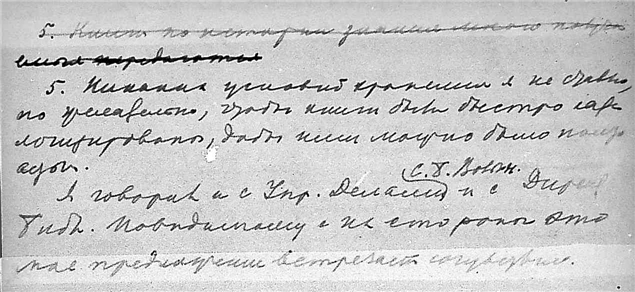 5. Книги по истории знания много
передаются
5. Никаких условий хранения я не ставлю,
но желательно, чтобы книги были быстро ката
логизированы, дабы ими можно было пользо
ваться.
С. б. Вольт.
Я говорил и с Упр. Делами и с Дирек
Библ. Повидимому с их стороны это
мое предложение встречает сочувствие.